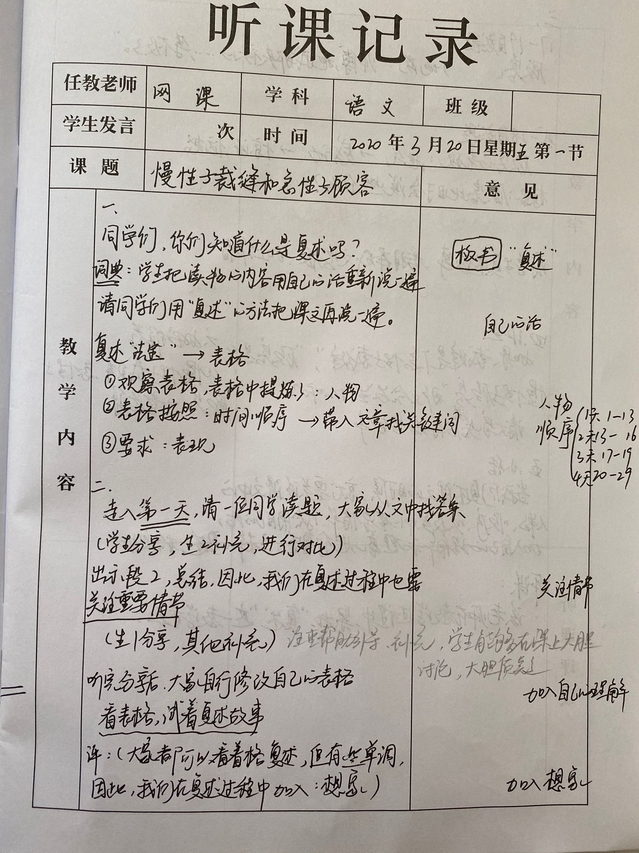 听课记录
任教老师 网课 学科 语文 班级
学生发言 次 时间 2020年3月20日星期五第一节
课题 慢性子裁缝和急性子顾客 意见
教学内容
一、
同学们,你们知道什么是复述吗? 板书 "复述"
词典:学生把读物的内容用自己的话重新说一遍
请同学们用"复述"的方法把课文再说一遍。 自己的话
复述"法宝"→表格
①观察表格,表格中提炼了:人物 人物
②表格按照:时间顺序→带入文章找关键词 顺序 1天1-13
2天13-16
③要求:表现 3天17-19
4天20-29
二、
走入第一天,请一位同学读题,大家从文中找答案
(学生分享,生2补充,进行对比)
出示段2,总结,因此,我们在复述过程中也要 关注情节
关注重要情节
(生1分享,其他补充) 学生自己多在课上大胆
讨论,大胆质疑
听完分享后,大家自行修改自己的表格 加入自己的理解
看表格,试着复述故事
评:(大家都可以看着表格复述,但有些单调,
因此,我们在复述过程中加入:想象) 加入想象